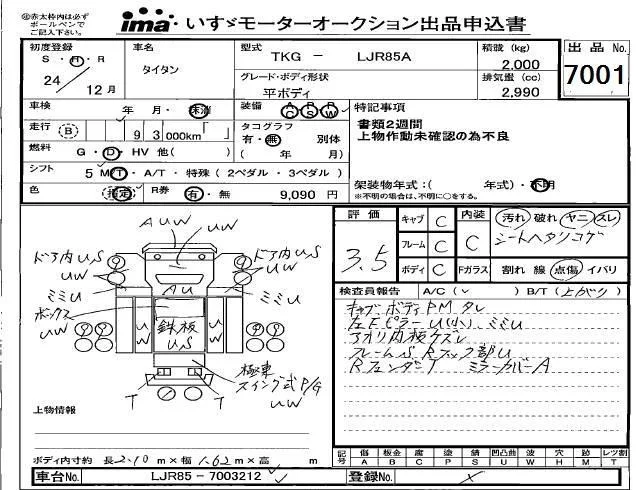 ㊟赤太枠内は必ず
ボールペンで
ご記入下さい。
ima いすゞモーターオークション出品申込書
初度登録
S・H・R
24 12月
車名
タイタン
型式 TKG － LJR85A
グレード・ボディ形状
平ボディ
積載 (kg)
2,000
排気量 (cc)
2,990
出品No.
7001
車検 年 月・抹消
装備 AC PS PW
走行 (B) 93000km
タコグラフ
有・無 別体
( 年 月)
燃料 G・D・HV 他( )
シフト 5 M/T・A/T・特殊 (2ペダル・3ペダル)
色 指定 R券 有・無 9,090 円
特記事項
書類2週間
上物作動未確認の為不良
架装物年式:( 年式)・不明
※不明の場合は、不明に○をする。
AUW UW
ドア内US ドア内US
UW UW
AU
ミミU ミミU
ボックス
UW
UW 鉄板 UW
US
極東
スイング式P/G
UW
T T
上物情報
ボディ内寸約 長2.10m×幅1.62m×高 m
評価
3.5
キャブ C
フレーム C
ボディ C
内装 C
汚れ 破れ ヤニ スレ
シートヘタリコゲ
Fガラス 割れ 線 点傷 イバリ
検査員報告 A/C( ✓ ) B/T(上がり)
キャブ ボディPM タレ
左Fピラー U(小)、ミミU
アオリ内板ケズレ
フレームS Rフック部U
Rフェンダー T ミラーカバーA
記号 傷A 板金B 腐C 塗P 錆S 凹凸曲U 波W 穴H 跡M レンズ割T
車台No. LJR85－7003212 ✓
登録No.